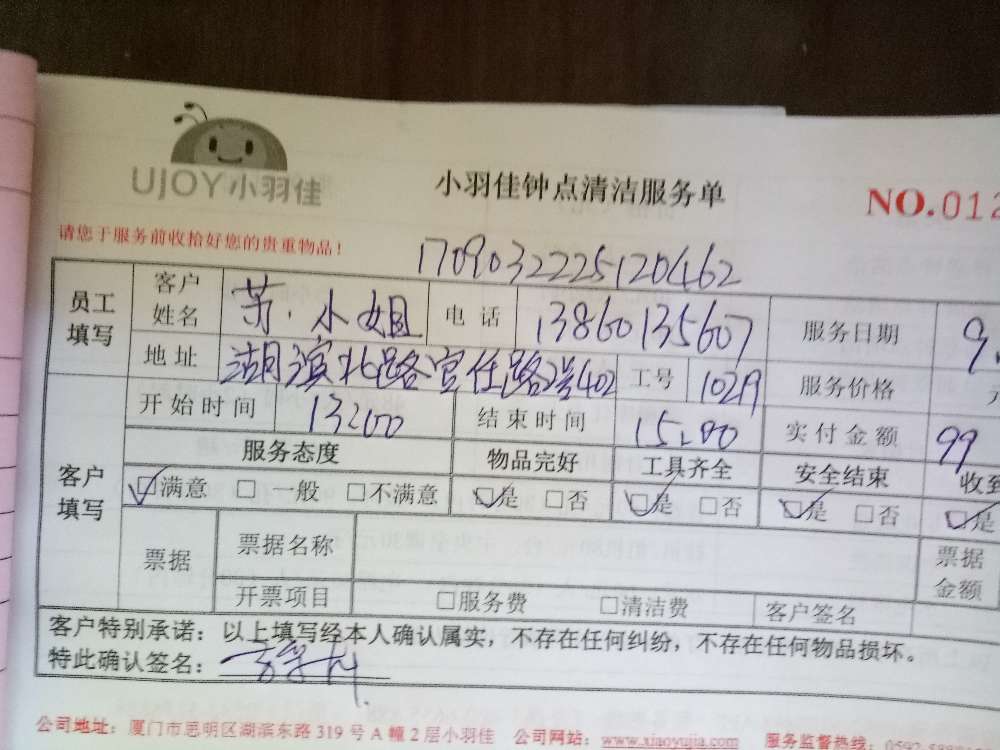 UJOY小羽佳
小羽佳钟点清洁服务单
NO.012
请您于服务前收拾好您的贵重物品!
1709032225120462
员工填写 客户姓名 小姐 电话 13860135607 服务日期 9.
地址 湖滨北路官任路2号402 工号 1029 服务价格 元
客户填写 开始时间 13:00 结束时间 15:00 实付金额 99
服务态度 物品完好 工具齐全 安全结束 收到
☑满意 □一般 □不满意 ☑是 □否 ☑是 □否 ☑是 □否 ☑是
票据 票据名称 票据金额
开票项目 □服务费 □清洁费 客户签名
客户特别承诺:以上填写经本人确认属实,不存在任何纠纷,不存在任何物品损坏。
特此确认签名:
公司地址:厦门市思明区湖滨东路319号A幢2层小羽佳 公司网站:www.xiaoyujia.com 服务监督热线:0592